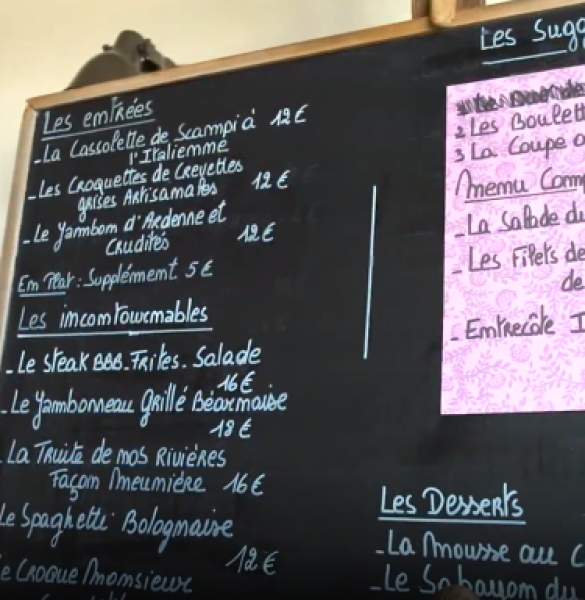 Les entrées
-La Cassolette de Scampi à 12€
l'Italienne
-Les Croquettes de Crevettes
grises Artisanales 12€
-Le Jambon d'Ardenne et
Crudités 12€
En Plat: Supplément 5€
Les incontournables
-Le steak BBB. Frites. Salade
16€
-Le Jambonneau grillé Béarnaise
18€
La Truite de nos Rivières
Façon Meunière 16€
Le Spaghetti Bolognaise
12€
e Croque Monsieur
Les Sugg
2 Les Boulett
3 La Coupe
Menu Com
-La Salade du
-Les Filets de
de
-Entrecôte
Les Desserts
-La Mousse au C
-Le Sabayon du